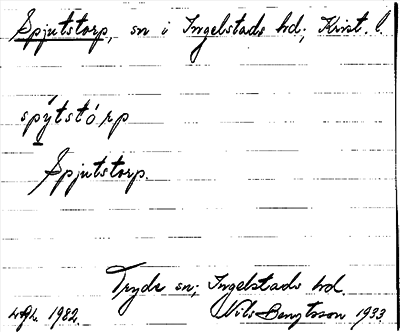 Spjutstorp, sn i Ingelstads hd; Krist. l.
spýtstórp
Spjutstorp.
Tryde sn; Ingelstads hd.
1982. Nils Bengtsson 1933